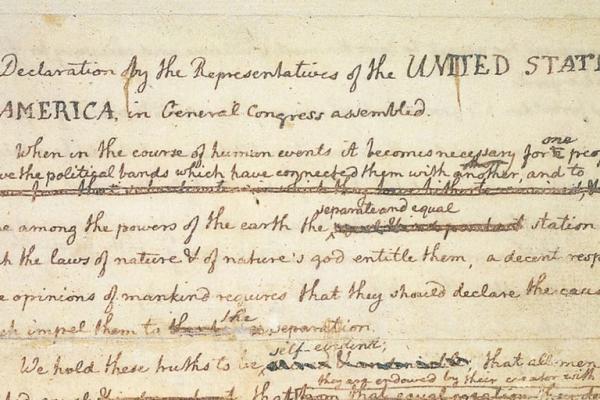 Declaration by the Representatives of the UNITED STAT
AMERICA, in General Congress assembled.
When in the course of human events it becomes necessary for one peo
ve the political bands which have connected them with another, and to
separate and equal
e among the powers of the earth the station
h the laws of nature & of nature's god entitle them, a decent resp
e opinions of mankind requires that they should declare the caus
ch impel them to the separation.
self-evident;
We hold these truths to be, that all men
they are endowed by their creator with
that equal creation